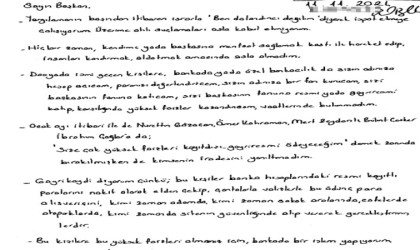 11.11.2024
Sayın Başkan,
Yargılamanın başından itibaren ısrarla "Ben dolandırıcı değilim" diyerek ispat etmeye
çalışıyorum üzerime atılı suçlamaları asla kabul etmiyorum.
- Hiçbir zaman, kendime yada başkasına menfaat sağlamak kastı ile hareket edip,
insanları kandırmak, aldatmak amacında asla olmadım.
- Dosyada ismi geçen kişilere, bankada yada özel bankacılık da sizin adınıza
hesap açayım, paranızı değerlendireyim, sizin adınıza bir fon kurayım, sizi
başkasının fonuna katayım, sizi başkasının fonuna resmi yada gayriresmi
katıp, karşılığında yüksek faizler kazandırayım, vaatlerinde bulunmadım.
- Ocak ayı itibari ile de Nurettin Ömer Kahraman, Mert Zeydanlı Bülent
İbrahim Çağlar'a da;
"Size çok yüksek faizleri kayıtdışı, gayriresmi ödeyeceğim" demek zorunda
bırakılmışken de kimsenin iradesini yanıltmadım.
- Gayri kaydi diyorum çünkü; bu kişiler banka hesaplarındaki resmi kayıtlı,
paralarını nakit olarak elden çekip, çantalarla valizlerle bu ödünç para
alışverişini, kimi zaman odamda, kimi zaman sokak aralarında, cafelerde
otoparklarda, kimi zamanda sitenin güvenliğinde alıp vererek gerçekleştirmiş
lerdir.
- Bu kişilere bu yüksek faizleri almanız için, bankada bir işlem yapıyorum